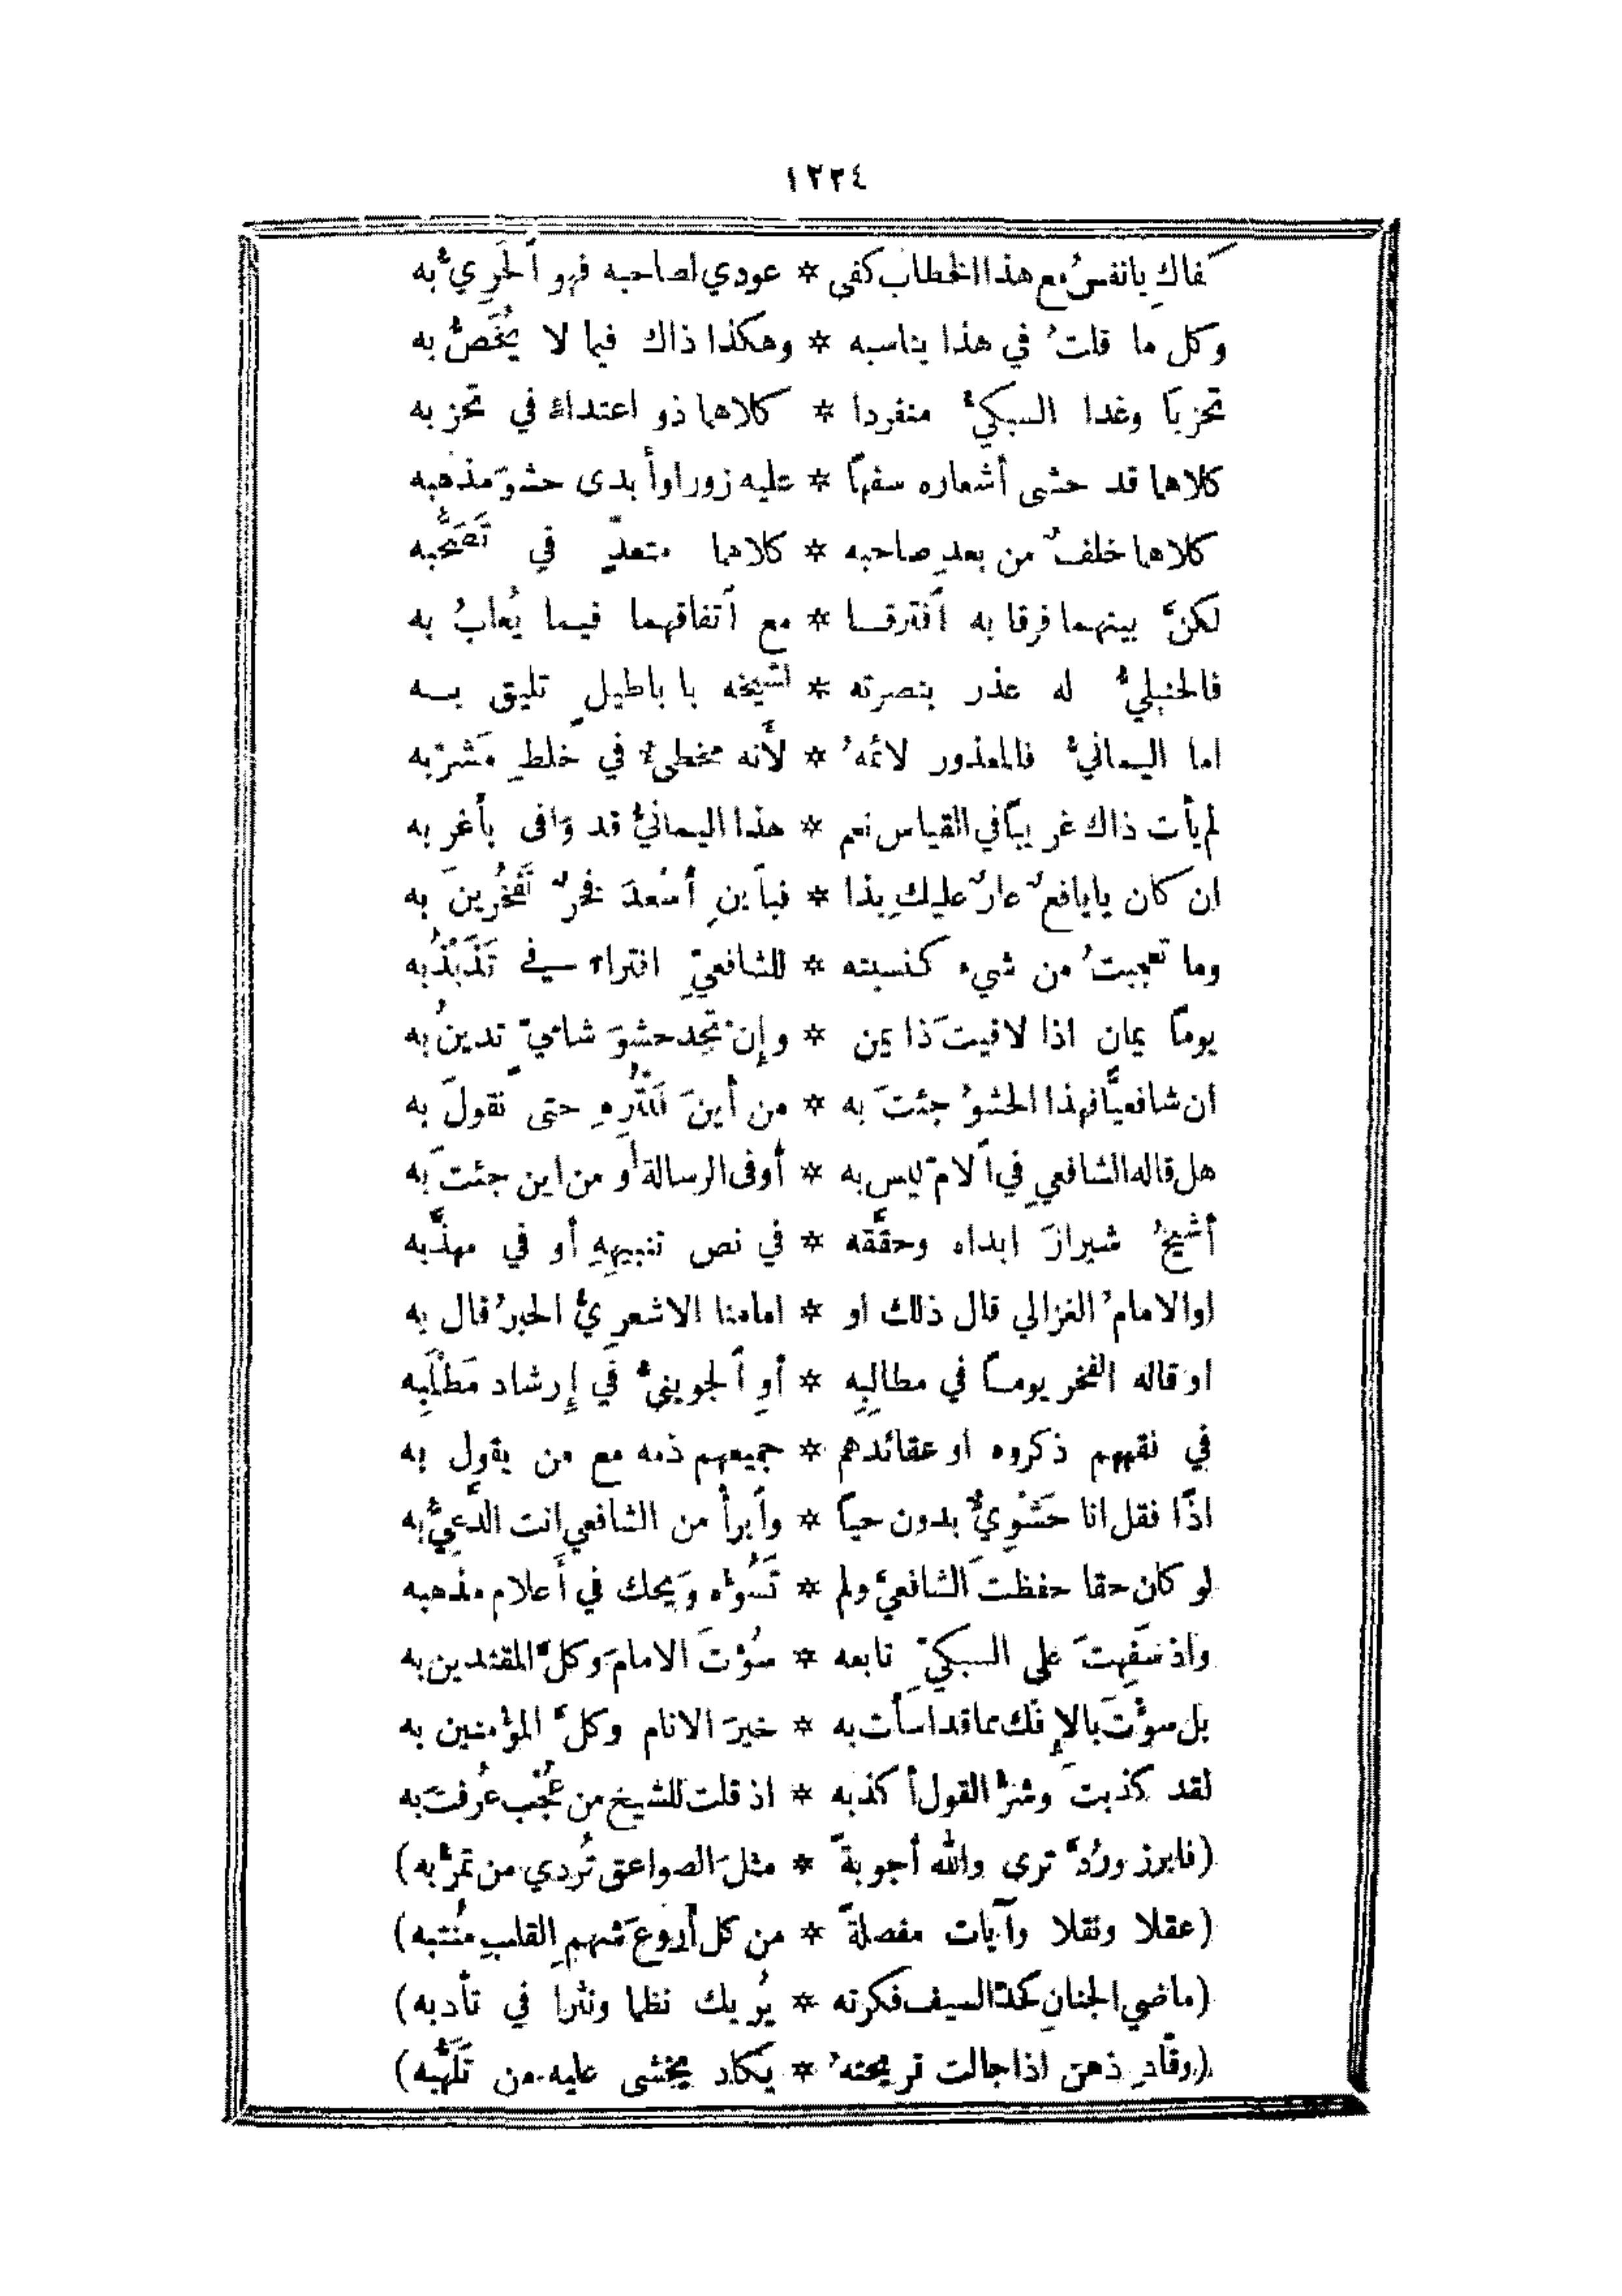 ١٢٢٤
كفاكِ يانفسُ مع هذا الخطاب كفى * عودي لصاحبه فهو ٱلحَرِيُّ به
وكل ما قلتُ في هذا يناسبه * وهكذا ذاك فيما لا يُخَصُّ به
تحزبًا وغدا السبكيُّ منفردا * كلاهما ذو اعتداءٍ في تحزبه
كلاهما قد حشى أشعاره سفهًا * عليه زورا وأبدى حشوَ مذهبه
كلاهما خلفٌ من بعدِ صاحبه * كلاهما متعدٍّ في تَعَصُّبه
لكنَّ بينهما فرقا به ٱفترقا * مع ٱتفاقهما فيما يُعابُ به
فالحنبليُّ له عذر بنصرته * لشيخه باباطيلٍ تليق به
اما اليمانيُّ فالمعذور لائمهُ * لأنه مخطئٌ في خلطِ مَشْرَبه
لم يأت ذاك غريبًا في القياس نعم * هذا اليمانيُّ قد وَافى بأغربه
ان كان يايافعٌ عارٌ عليكِ بذا * فبابنِ أسْعدَ فخرٌ تَفْخُرينَ به
وما تعجبتُ من شيء كنسبته * للشافعيِّ افتراء في تَذَبْذُبه
يومًا يمانٍ اذا لاقيتَ ذا يمن * وإنْ تجِد حشوَ شاميٍّ تدينُ به
ان شافعيًّا فهذا الحشوُ جئتَ به * من أينَ لمْ تُدْرِهِ حتى نقولَ به
هل قاله الشافعيِ في ٱلامّ ليس به * أوفى الرسالة أو من اين جئتَ به
أشيخُ شيرازَ ابداه وحقَّقه * في نص تنبيههِ أو في مهذَّبه
اوالامامُ الغزالي قال ذلك او * امامنا الاشعريُّ الحبرُ قال به
او قاله الفخر يومًا في مطالبِهِ * أوِ ٱلجوينيُّ في إِرشاد مَطْلَبِه
في فقههم ذكروه او عقائدهم * جميعهم ذمه مع من يقول به
اذًا فقل انا حَشْوِيٌّ بدون حيًا * وٱبرأ من الشافعي انت الدَّعِيُّ به
لو كان حقا حفظتَ الشافعيَّ ولم * تَسُؤه وَيحك في أَعلام مذهبه
واذ سَفِهتَ على السبكيّ تابعه * سُؤتَ الامامَ وكلَّ المقتدين به
بل سؤتَ بالإِفك مما قد اسأت به * خيرَ الانام وكلَّ المؤمنين به
لقد كذبتَ وشرُّ القول أكذبه * اذ قلت للشيخ من عُجْب عُرفتَ به
(فابرز ورُدَّ ترى والله أجوبةً * مثلَ الصواعق تُردي من تمرُّ به)
(عقلا ونقلا وآيات مفصلةً * من كل أروعَ شهمِ القلبِ مُنتبه)
(ماضي الجنانِ كحدّ السيف فكرته * يُريك نظما ونثرا في تأدبه)
(وقَّادِ ذهن اذا جالت قريحتهُ * يَكاد يخشى عليه من تَلَهُّبه)